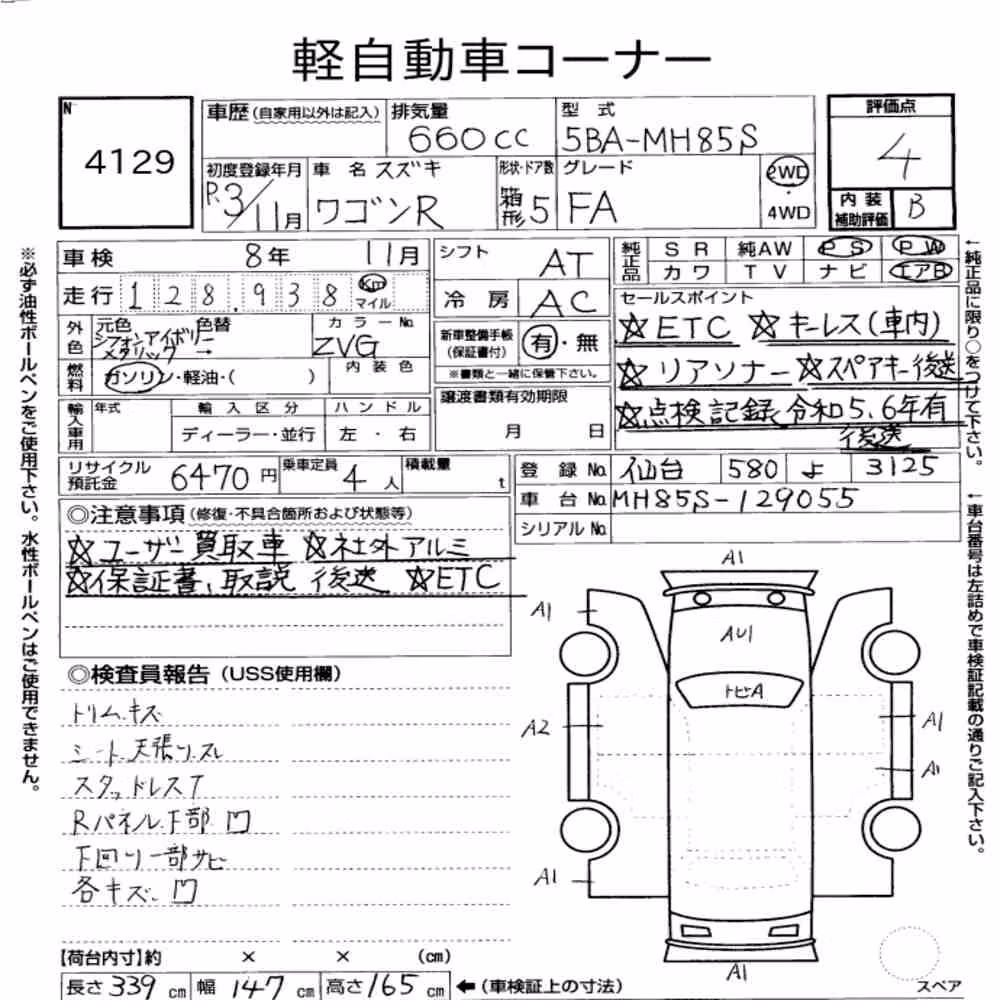 軽自動車コーナー
N 4129
車歴 (自家用以外は記入) 排気量 660cc 型式 5BA-MH85S
評価点 4
初度登録年月 R3/11月 車名 スズキ ワゴンR 形状・ドア数 箱形 5 グレード FA 2WD・4WD
内装補助評価 B
車検 8年 11月 シフト AT
純正品 SR 純AW PS PW
カワ TV ナビ エアB
走行 128,938 Km マイル 冷房 AC
セールスポイント
☆ETC ☆キーレス(車内)
☆リアソナー ☆スペアキー後送
☆点検記録令和5,6年有
後送
外色 元色 シフォンアイボリーメタリック 色替 → カラーNo. ZVG
新車整備手帳(保証書付) 有・無
※書類と一緒に保管下さい。
燃料 ガソリン・軽油・( ) 内装色
譲渡書類有効期限
月 日
輸入車用 年式 輸入区分 ハンドル
ディーラー・並行 左・右
リサイクル預託金 6470円 乗車定員 4人 積載量 t
登録No. 仙台 580 よ 3125
車台No. MH85S-129055
シリアルNo.
◎注意事項 (修復・不具合箇所および状態等)
☆ユーザー買取車 ☆社外アルミ
☆保証書、取説 後送 ☆ETC
◎検査員報告 (USS使用欄)
トリム キズ
シート、天張リ スレ
スタッドレスT
Rパネル下部 凹
下回リ一部サビ
各キズ、凹
A1
A1
AU1
トビA
A2
A1
A1
A1
A1
スペア
【荷台内寸】約 × × (cm)
長さ 339 cm 幅 147 cm 高さ 165 cm ←(車検証上の寸法)
※必ず油性ボールペンをご使用下さい。水性ボールペンはご使用できません。
←純正品に限り○をつけて下さい。
←車台番号は左詰めで車検証記載の通りご記入下さい。